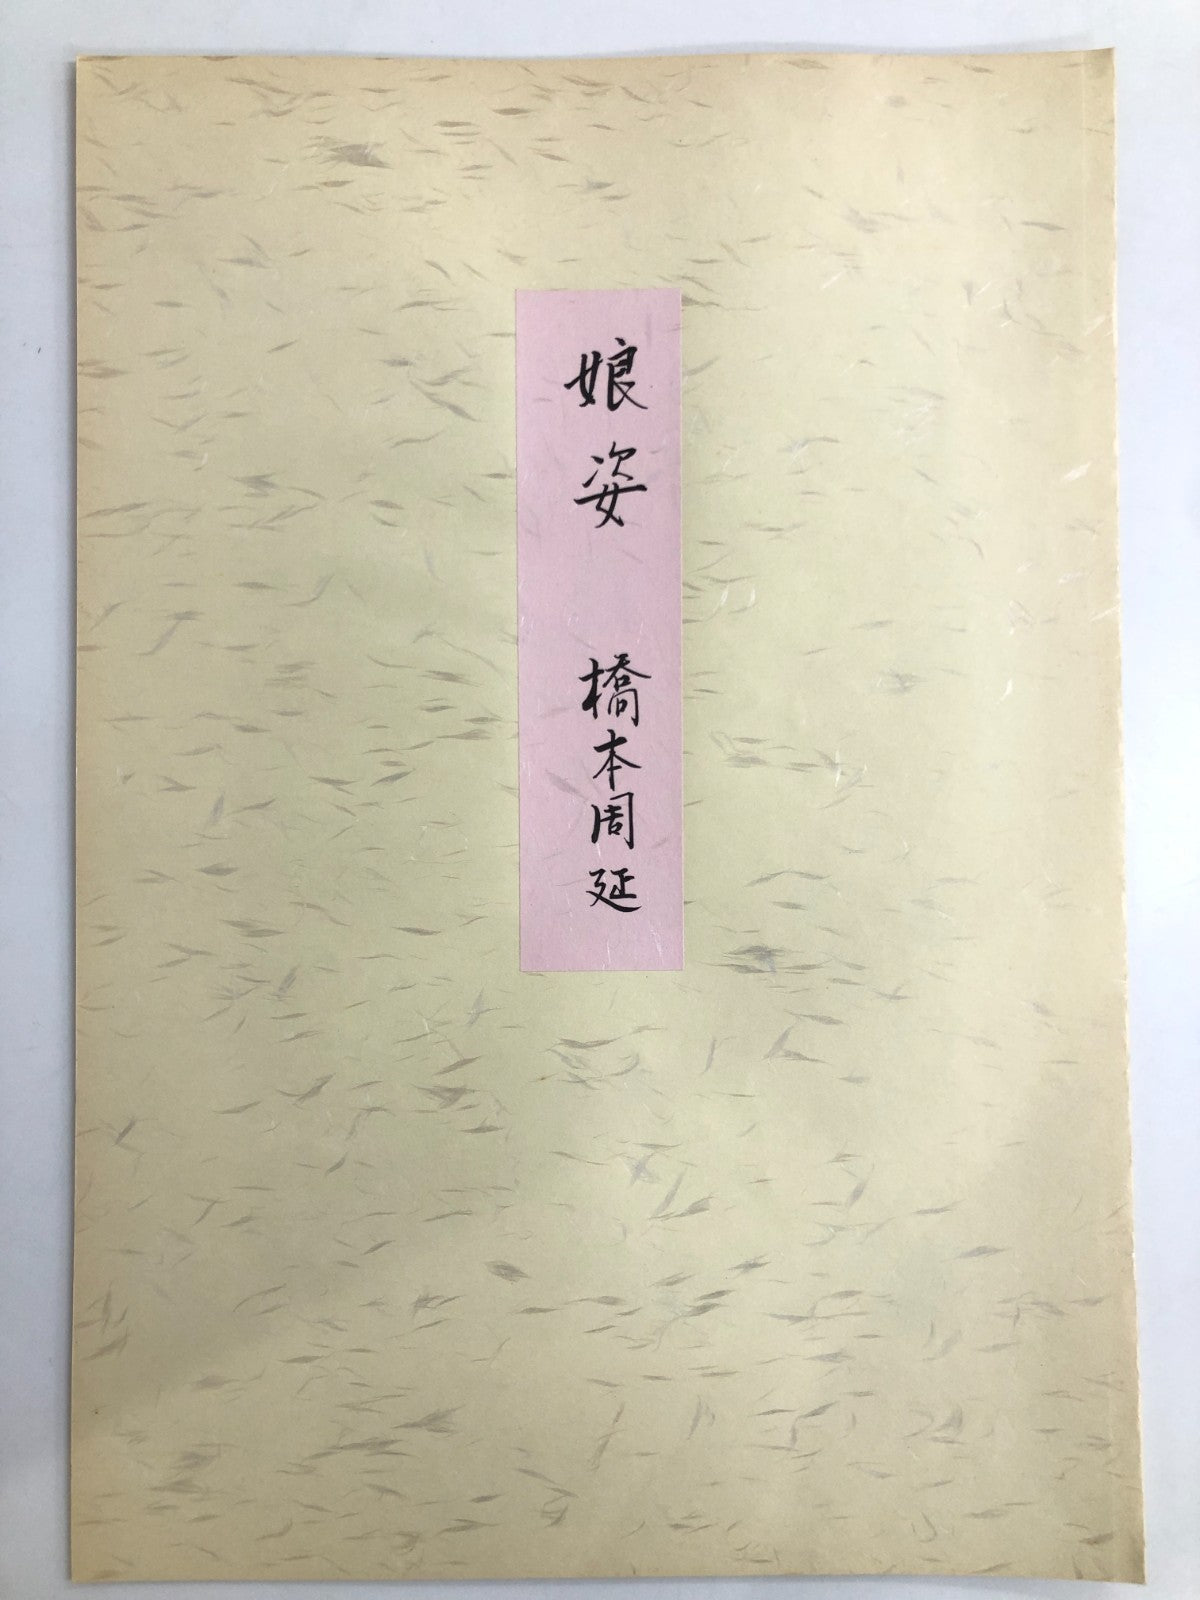 娘姿 橋本周延